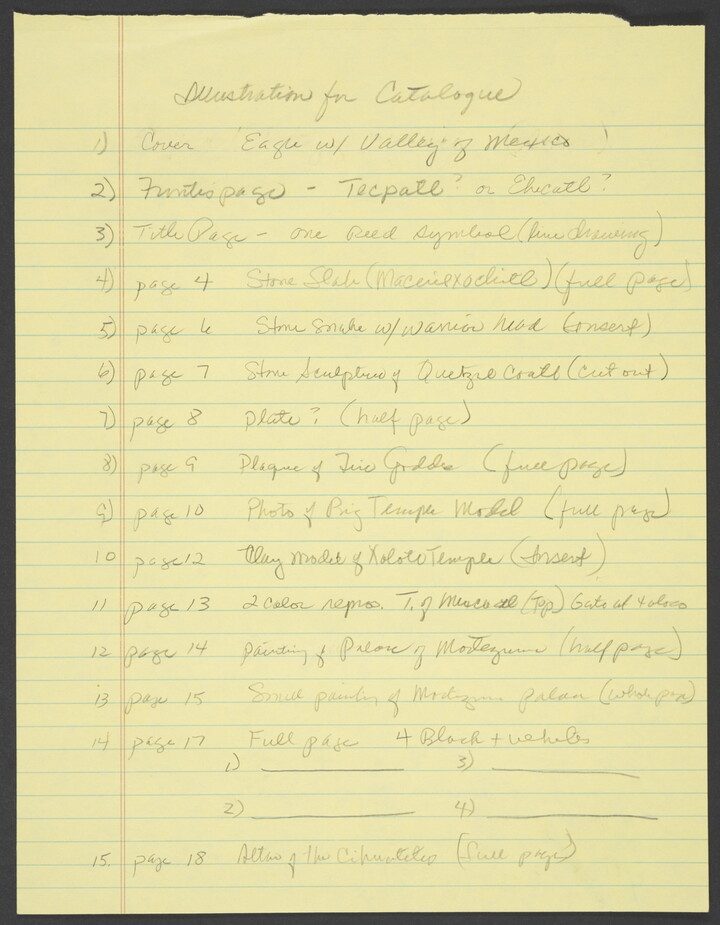 Illustration for Catalogue
1) Cover 'Eagle w/ Valley of Mexico'
2) Fontispage - Tecpatl? or Ehecatl?
3) Title Page - one reed symbol (line drawing)
4) page 4 Stone Slab (Macuilxochitl) (full page)
5) page 6 Stone Snake w/ warrior head (insert)
6) page 7 Stone Sculpture of Quetzalcoatl (cut out)
7) page 8 Plate? (half page)
8) page 9 Plaque of Fire Goddess (full page)
9) page 10 Photo of Temple Model (full page)
10 page 12 Clay Model of Xolotl Temple (Insert)
11 page 13 2 color repros. T. of (Top)
12 page 14 painting of Palace of Moctezuma (half page)
13 page 15 Small painting of Moctezuma palace (whole page)
14 page 17 Full page 4 Black + whites
1) 3)
2) 4)
15. page 18 Altar of the Cihuateteo (full page)